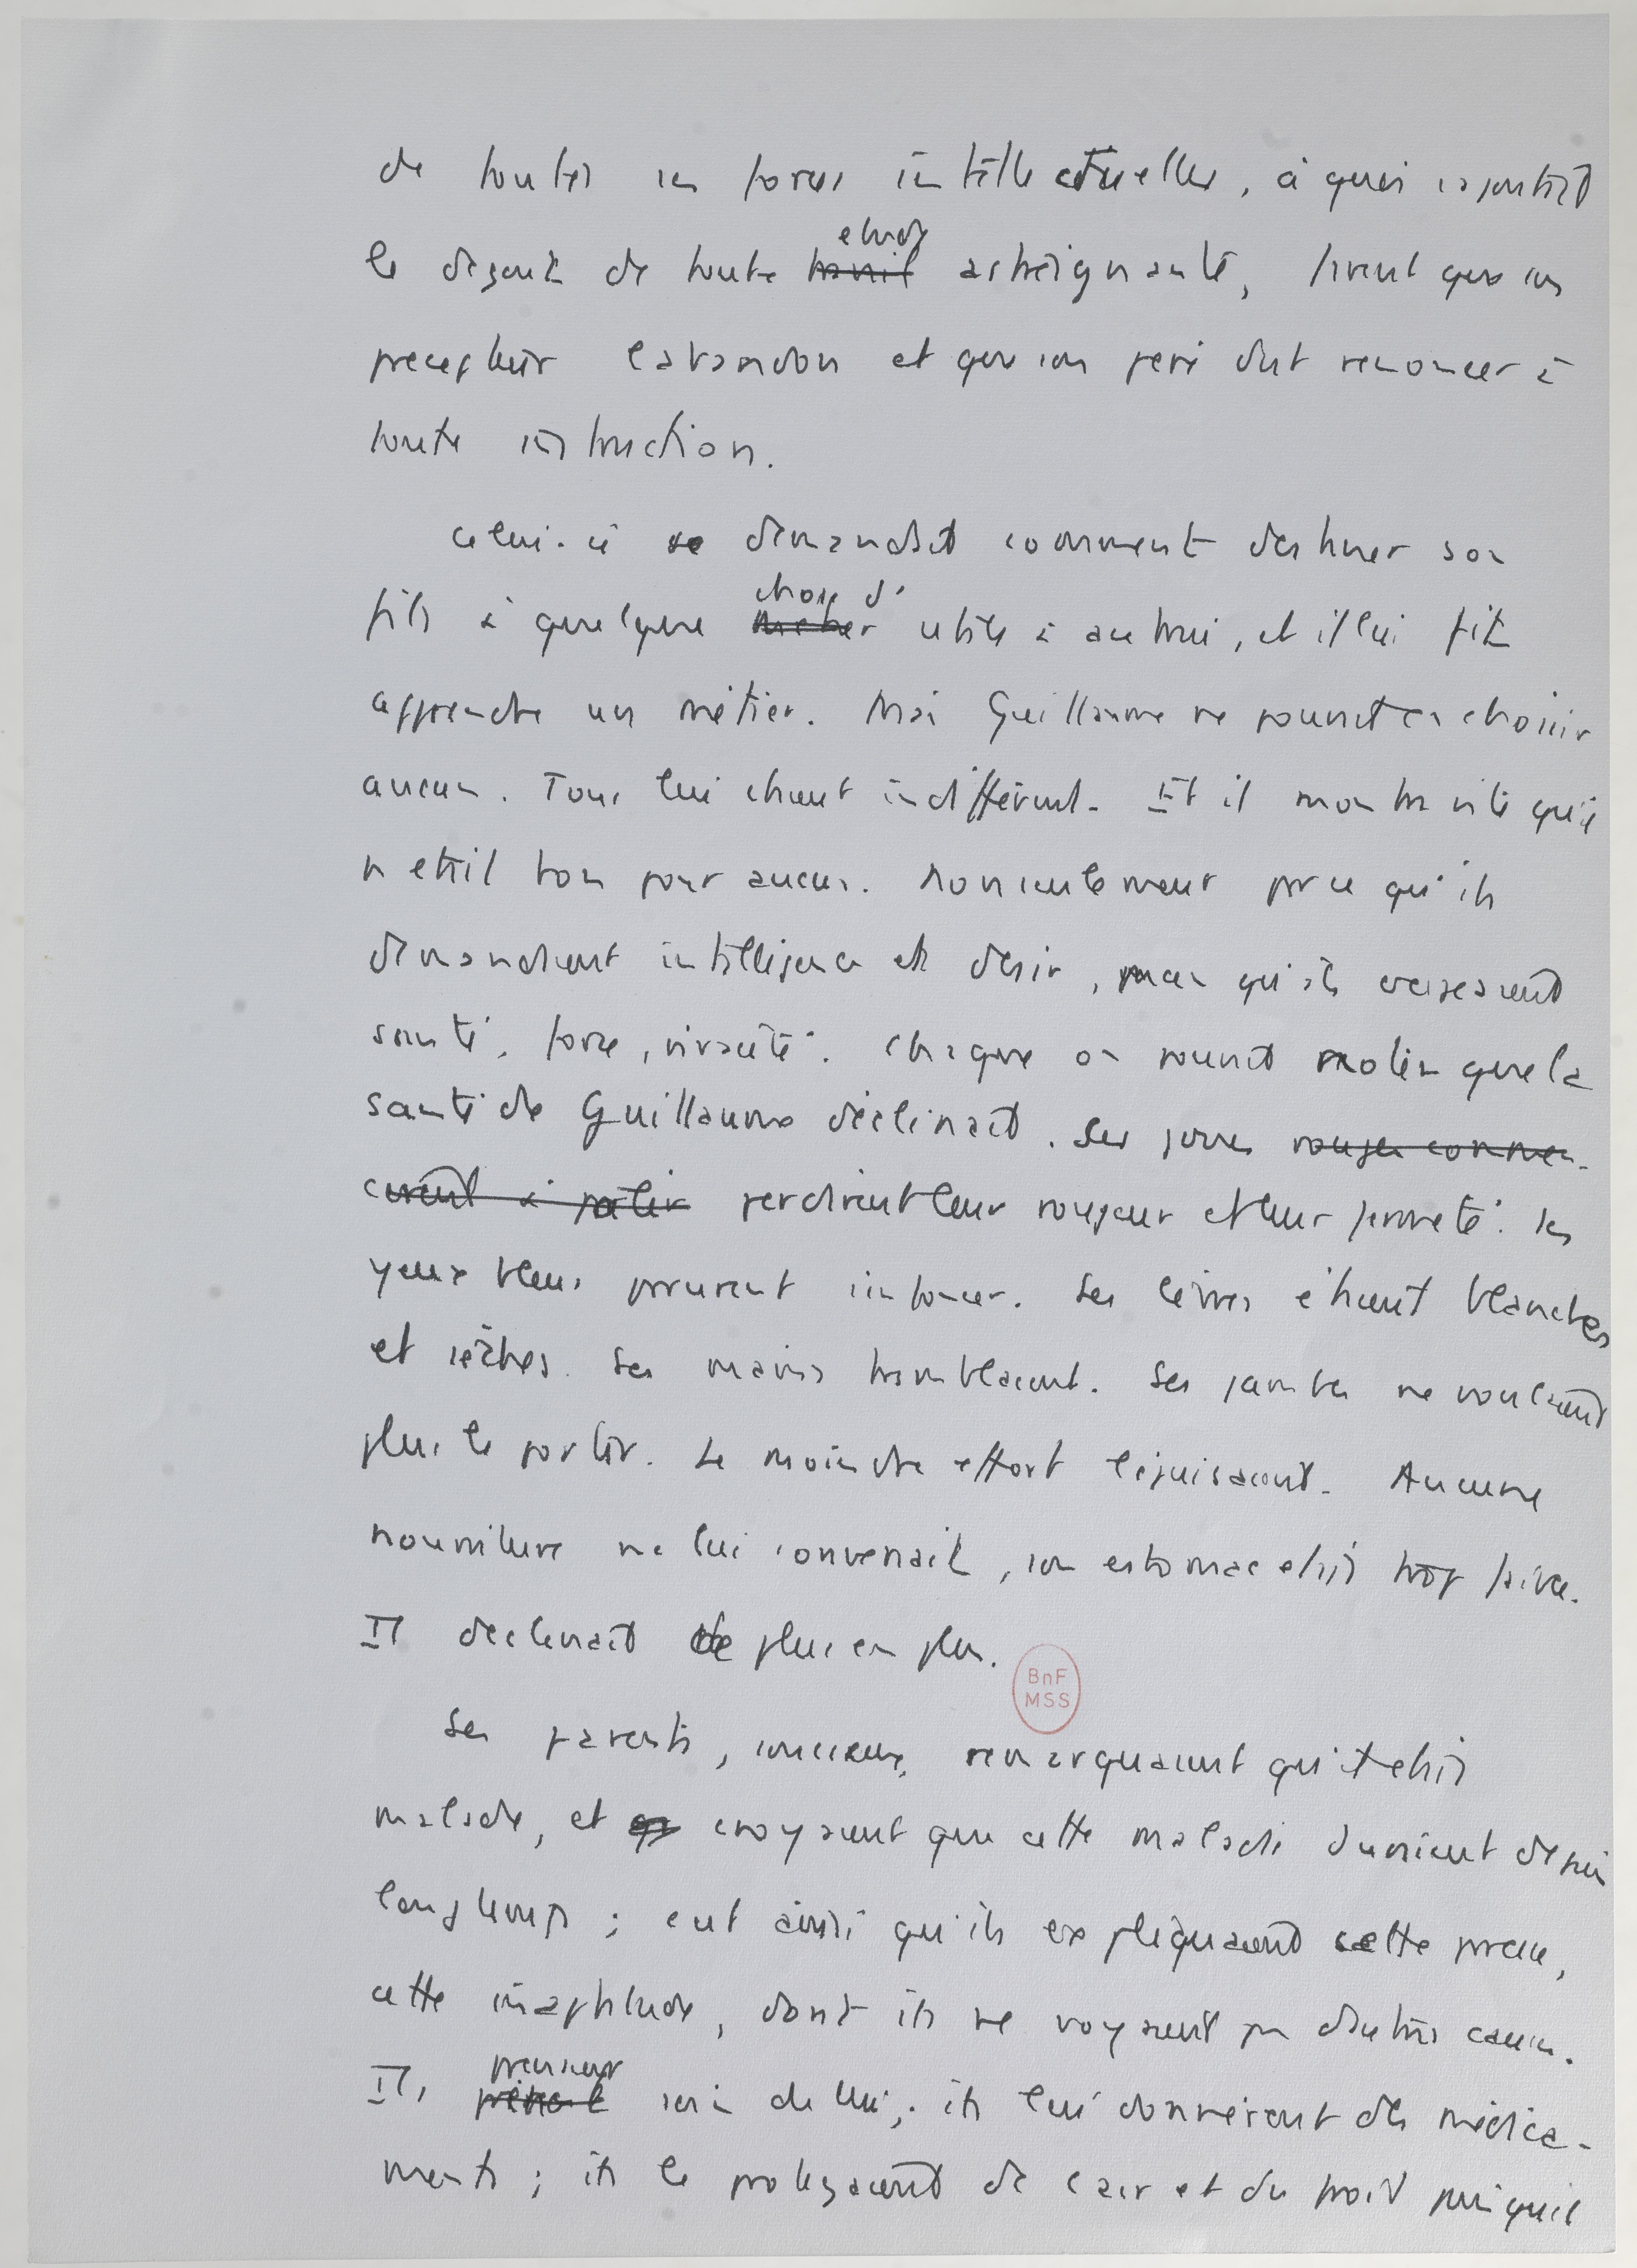 de toutes ses forces intellectuelles, à quoi s'ajoutait
étude
le dégoût de toute travail astreignante, firent que son
precepteur l'abandon et que son père dut renoncer à
toute instruction.
Celui-ci se demandait comment destiner son
chose d'
fils à quelque métier utile à autrui, et il lui fit
apprendre un métier. Mais Guillaume ne pouvait en choisir
aucun. Tous lui étaient indifférent. Et il montra vite qu'il
n'était bon pour aucun. Non seulement parce qu'ils
demandaient intelligence et désir, mais qu'ils
santé, force, vivacité. Chaque on pouvait que la
santé de Guillaume déclinait. Ses joues rouges commen-
cèrent à pâlir perdirent leur rougeur et leur fermeté. Ses
yeux bleus parurent s'enfoncer. Ses lèvres étaient blanches
et sèches. Ses mains tremblaient. Ses jambes ne voulaient
plus le porter. Le moindre effort l'épuisaient. Aucune
nourriture ne lui convenait, son estomac était trop faible.
Il déclinait de plus en plus.
BnF
MSS
Ses parents, soucieux, remarquaient qu'il était
malade, et croyaient que cette maladie durait depuis
longtemps ; c'est ainsi qu'ils expliquaient cette paresse,
cette inaptitude, dont ils ne voyaient pas d'autres causes.
prennent
Ils soin de lui ; ils lui donnèrent des médica-
ments ; ils le protégeaient de l'air et du froid puisqu'il